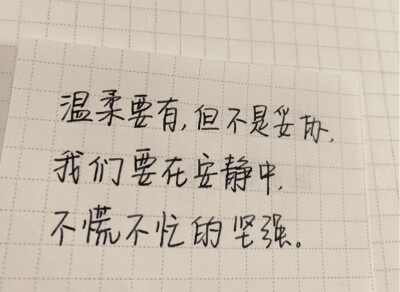 温柔要有,但不是妥协,
我们要在安静中,
不慌不忙的坚强。